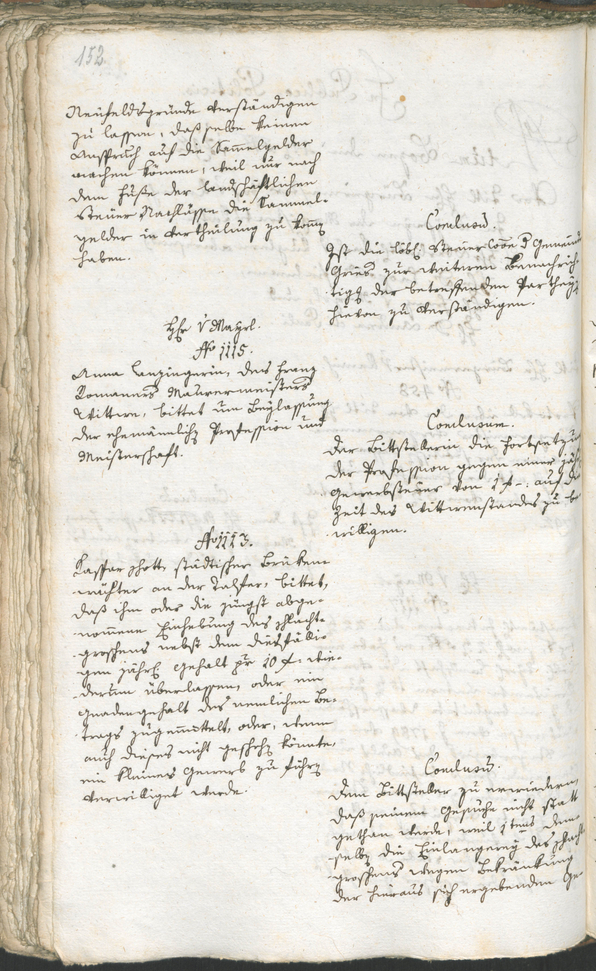 152
Neufeldsgründe verständigen
zu lassen, daß selbe keinen
Anspruch auf die Sam̄elgelder
machen können, weil nur nach
dem Fuße der landschäftlichen
Steuer Nachlässen die Sammel-
gelder in Vertheilung zu kom̄en
haben.
Conclusum.
Ist die löbl. Steuer
Gries zur weiteren Benachrich-
tigg der betreffenden Partheyen
hievon zu verständigen.
Hr v Mayrl.
No 1115.
Anna Lanzingerin, des Franz
Romaners Maurermeisters
Wittwe, bittet um Beylassung
der ehemänlich Profession und
Meisterschaft.
Conclusum.
Der Bittstellerin die Fortsetzung
der Profession gegen einer jähr
Gewerbsteuer von 1 f -: auf die
Zeit des Wittwenstandes zu be-
willigen.
No 1113.
Kaspar städtischer Bruken-
wächter an der Talfer, bittet,
daß ihm oder die jüngst abge-
nommene Einhebung des Schlacht-
groschens nebst dem diesfälli-
gen jährl Gehalt pr 10 f: wie-
derum überlassen, oder ein
Gnadengehalt des nemlichen Be-
trags zugemittelt, oder, wenn
auch dieses nicht gescheh könnte,
ein kleines Gewerb zu führen
verwilliget werde.
Conclusum.
Dem Bittsteller zu erwiedern,
daß seinem Gesuche nicht statt
gethan werde, weil 1tens dem-
selben die Einlangerung des Schlacht
groschens wegen Bekränkung
der hieraus sich ergebenden Ge-